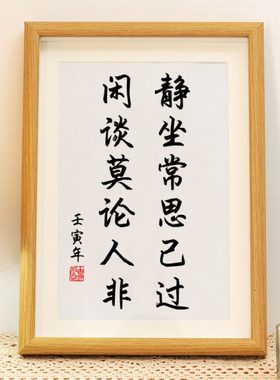 静坐常思己过
闲谈莫论人非
壬寅年